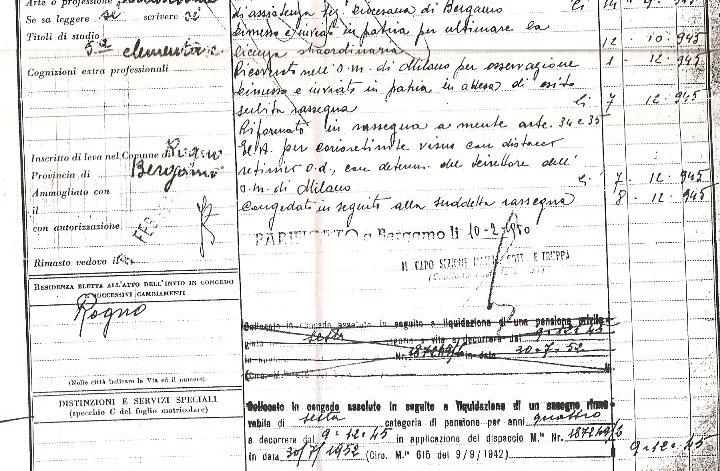 Arte o professione
Se sa leggere se scrivere si
Titoli di studio
5ª elementare
Cognizioni extra professionali
Inscritto di leva nel Comune di Rogno
Provincia di Bergamo
Ammogliato con
il
con autorizzazione
Rimasto vedovo il
RESIDENZA ELETTA ALL'ATTO DELL'INVIO IN CONGEDO
E SUCCESSIVI CAMBIAMENTI
Rogno
(Nelle città indicare la Via ed il numero).
DISTINZIONI E SERVIZI SPECIALI
(specchio C del foglio matricolare)
di assistenza diocesana di Bergamo li 14 9 945
Dimesso e inviato in patria per ultimare la
licenza straordinaria 12 10 945
Ricoverato nell'O.M. di Milano per osservazione 1 12 945
Dimesso e inviato in patria in attesa di esito
subita rassegna li 7 12 945
Riformato in rassegna a mente arte. 34 e 35
per corioretinite visus con distacco
retinico o.d., con determ. del Direttore dell'
O.M. di Milano li 7 12 945
Congedato in seguito alla suddetta rassegna 8 12 945
PARIFICATO a Bergamo li 10-2-1950
IL CAPO SEZIONE E TRUPPA
Collocato in congedo assoluto in seguito a liquidazione di una pensione privile
sesta a vita a decorrere dal 9-12-45
Nr. 187249/6 in data 30-7-52
Collocato in congedo assoluto in seguito a liquidazione di un assegno rinno
vabile di sesta categoria di pensione per anni quattro
a decorrere dal 9-12-45 in applicazione del dispaccio M.le Nr. 187249/6
in data 30/7/1952 (Circ. M.le 615 del 9/9/1942). 9-12-45